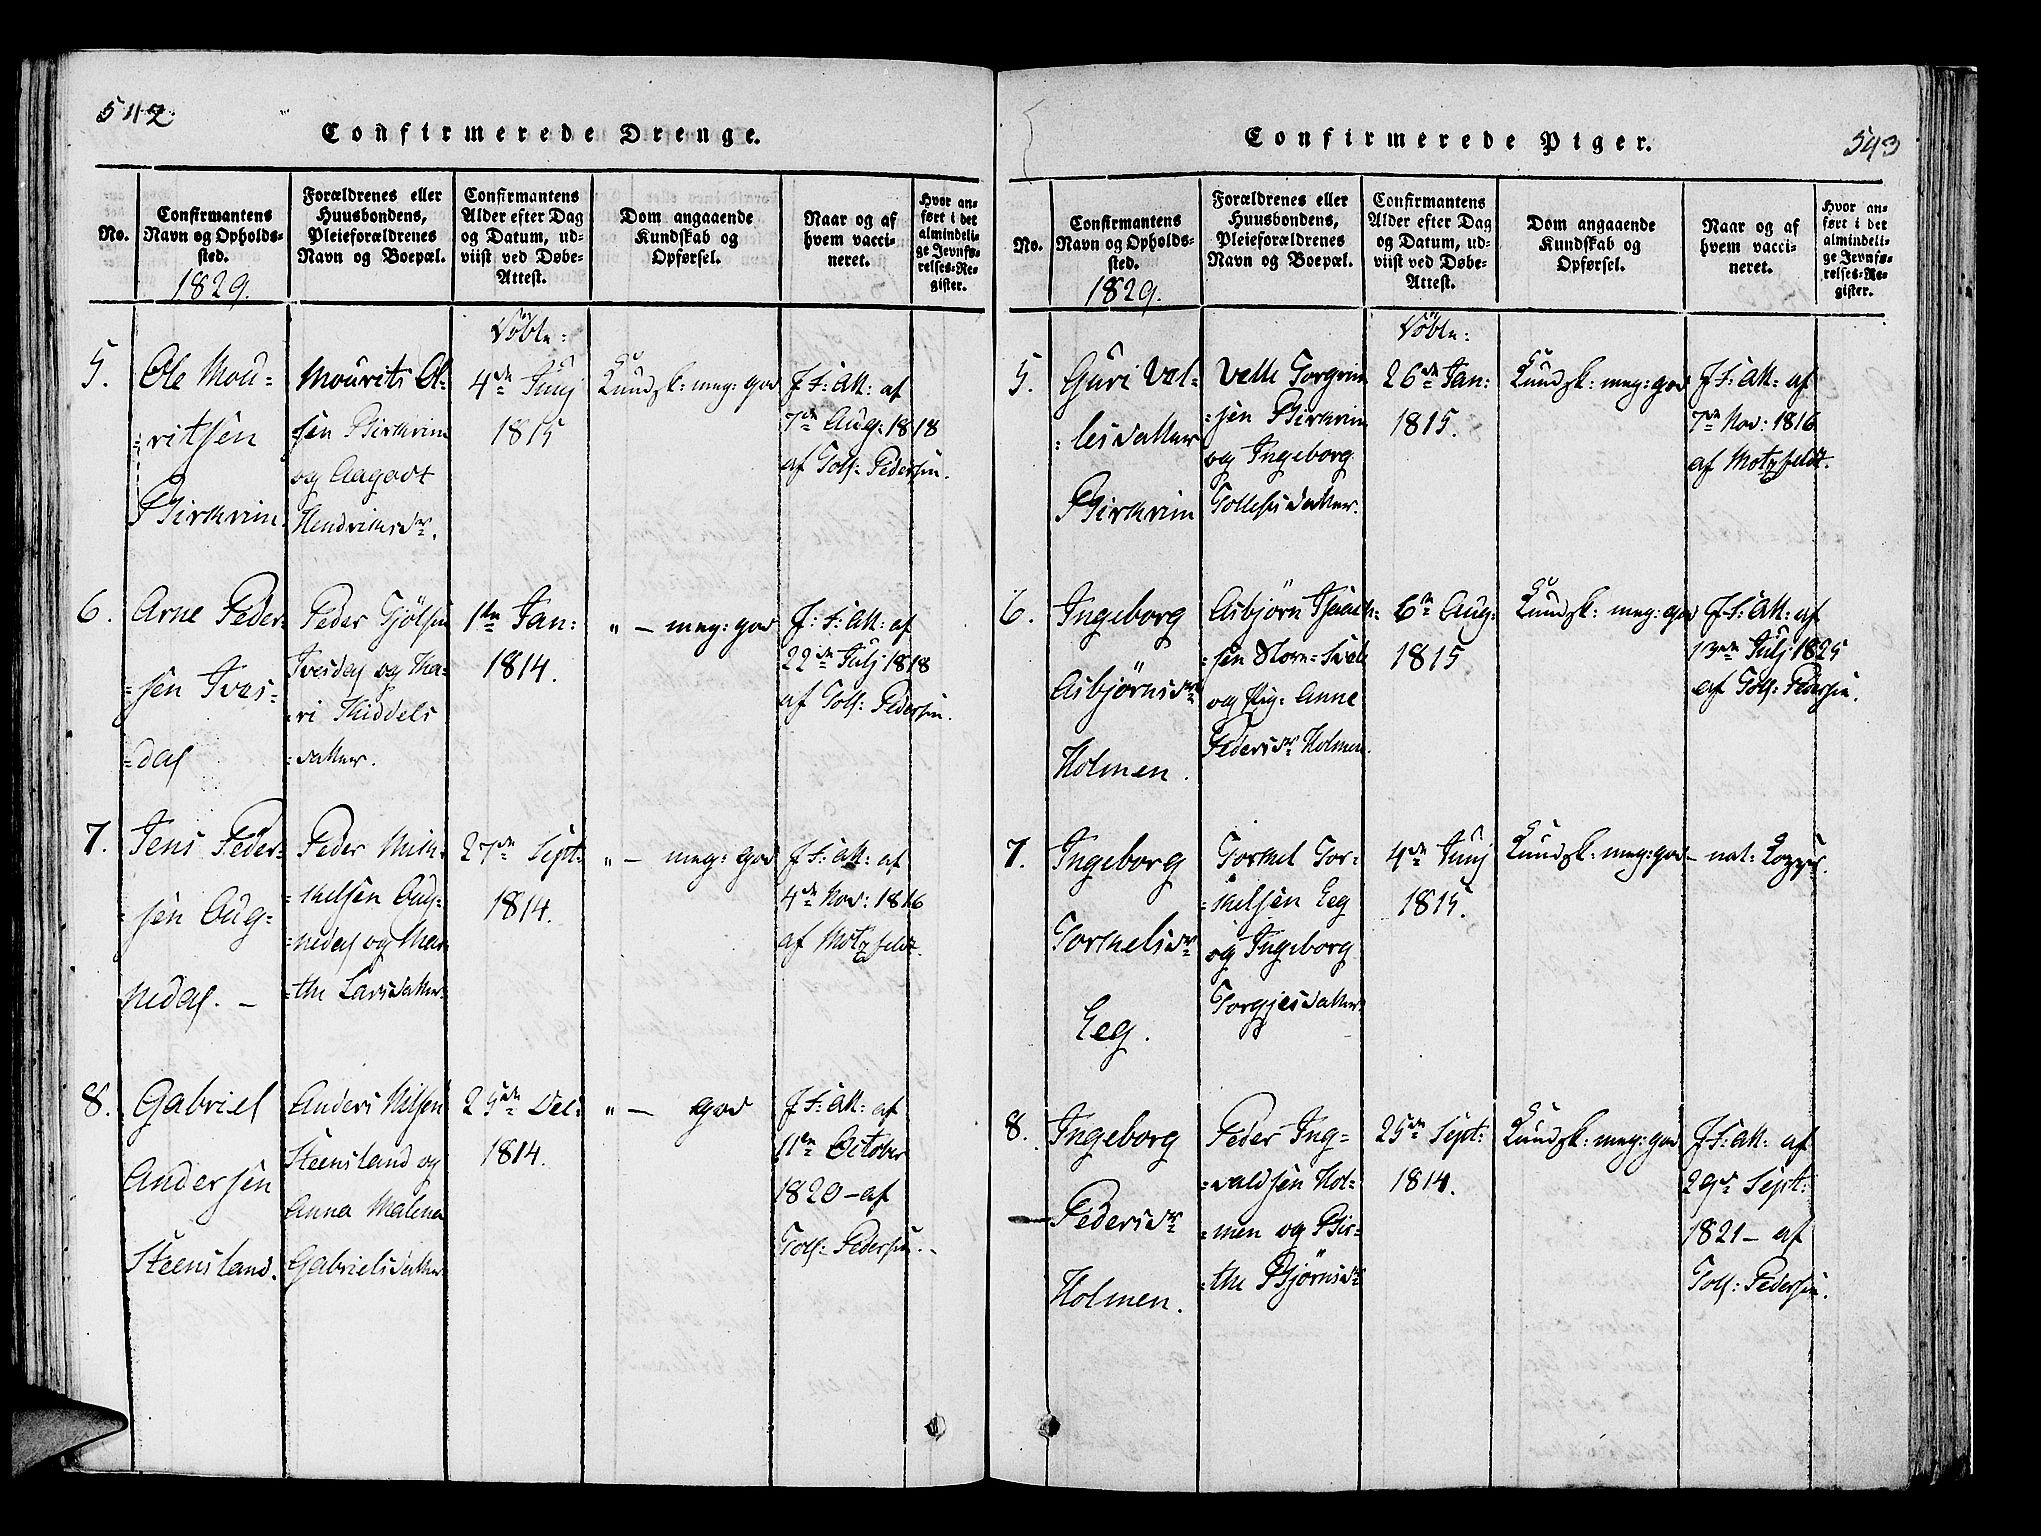 542
Confirmerede Drenge.
No.
Confirmantens
Navn og Opholds-
sted.
1829.
Forældrenes eller
Huusbondens,
Pleieforældrenes
Navn og Boepæl.
Confirmantens
Alder efter Dag
og Datum, ud-
viist ved Døbe-
Attest.
Dom angaaende
Kundskab og
Opførsel.
Naar og af
hvem vacci-
neret.
Hvor an-
ført i det
almindeli-
ge Jevnfø-
relses-Re-
gister.
5.
Ole Mou-
=ritsen
Birkrim
Mourits Ol-
sen Birkrim
og Aagodt
Hendriksdr.
Døbte:
4de Junj
1815
Kundsk: meg: god
f: S: Att: af
7de Aug: 1818
af Toll: Pedersen.
6.
Arne Peder-
=sen Ives-
=dal
Peder Gjølsen
Ivesdal og Ka-
=ri Kiddels
=datter.
1ste Jan:
1814.
" — meg: god
f: S: Att: af
22de Julj 1818
af Toll: Pedersen.
7.
Jens Peder-
=sen Oug-
nedal. —
Peder Mik-
=kelsen Oug-
=nedal og Mar
=the Larsdatter
27de Sept:
1814.
" — meg: god
f: S: Att: af
4de Nov: 1816
af Motzfeldt.
8.
Gabriel
Andersen
Steensland.
Anders Nilsen
Steensland og
Anna Malena
Gabrielsdatter
25de Dec:
1814.
" — god
f: S: Att: af
11te October
1820 - af
Toll: Pedersen. -
Confirmerede Piger.
543
No.
Confirmantens
Navn og Opholds-
sted.
1829.
Forældrenes eller
Huusbondens,
Pleieforældrenes
Navn og Boepæl.
Confirmantens
Alder efter Dag
og Datum, ud-
viist ved Døbe-
Attest.
Dom angaaende
Kundskab og
Opførsel.
Naar og af
hvem vacci-
neret.
Hvor an-
ført i det
almindeli-
ge Jevnfø-
relses-Re-
gister.
5.
Guri Vel-
=lesdatter
Birkrim
Velle Torgrim
=sen Birkrim
og Ingeborg
Tollefsdatter.
Døbte:
26de Jan:
1815.
Kundsk: meg: god
f: S: Att: af
7de Nov: 1816
af Motzfeldt.
6.
Ingeborg
Asbjørnsdr
Holmen.
Asbjørn
og Pig: Anne
Pedersdr Holmen.
6te Aug:
1815
Kundsk: meg: god
f: S: Att: af
13de Julj 1825
af Toll: Pedersen.
7.
Ingeborg
Torkelsdr
Eeg.
Torkel Tor-
=kelsen Eeg
og Ingeborg
Torgjesdatter
4de Junj
1815.
Kundsk: meg: god
— nat: Kopper.
8.
Ingeborg
— Pedersdr
Holmen.
Peder Ing-
=valdsen Hol-
=men og Bir-
=the Bjørnsdr
25de Sept:
1814.
Kundsk: meg: god
f: S: Att: af
29de Sept:
1821 - af
Toll: Pedersen.